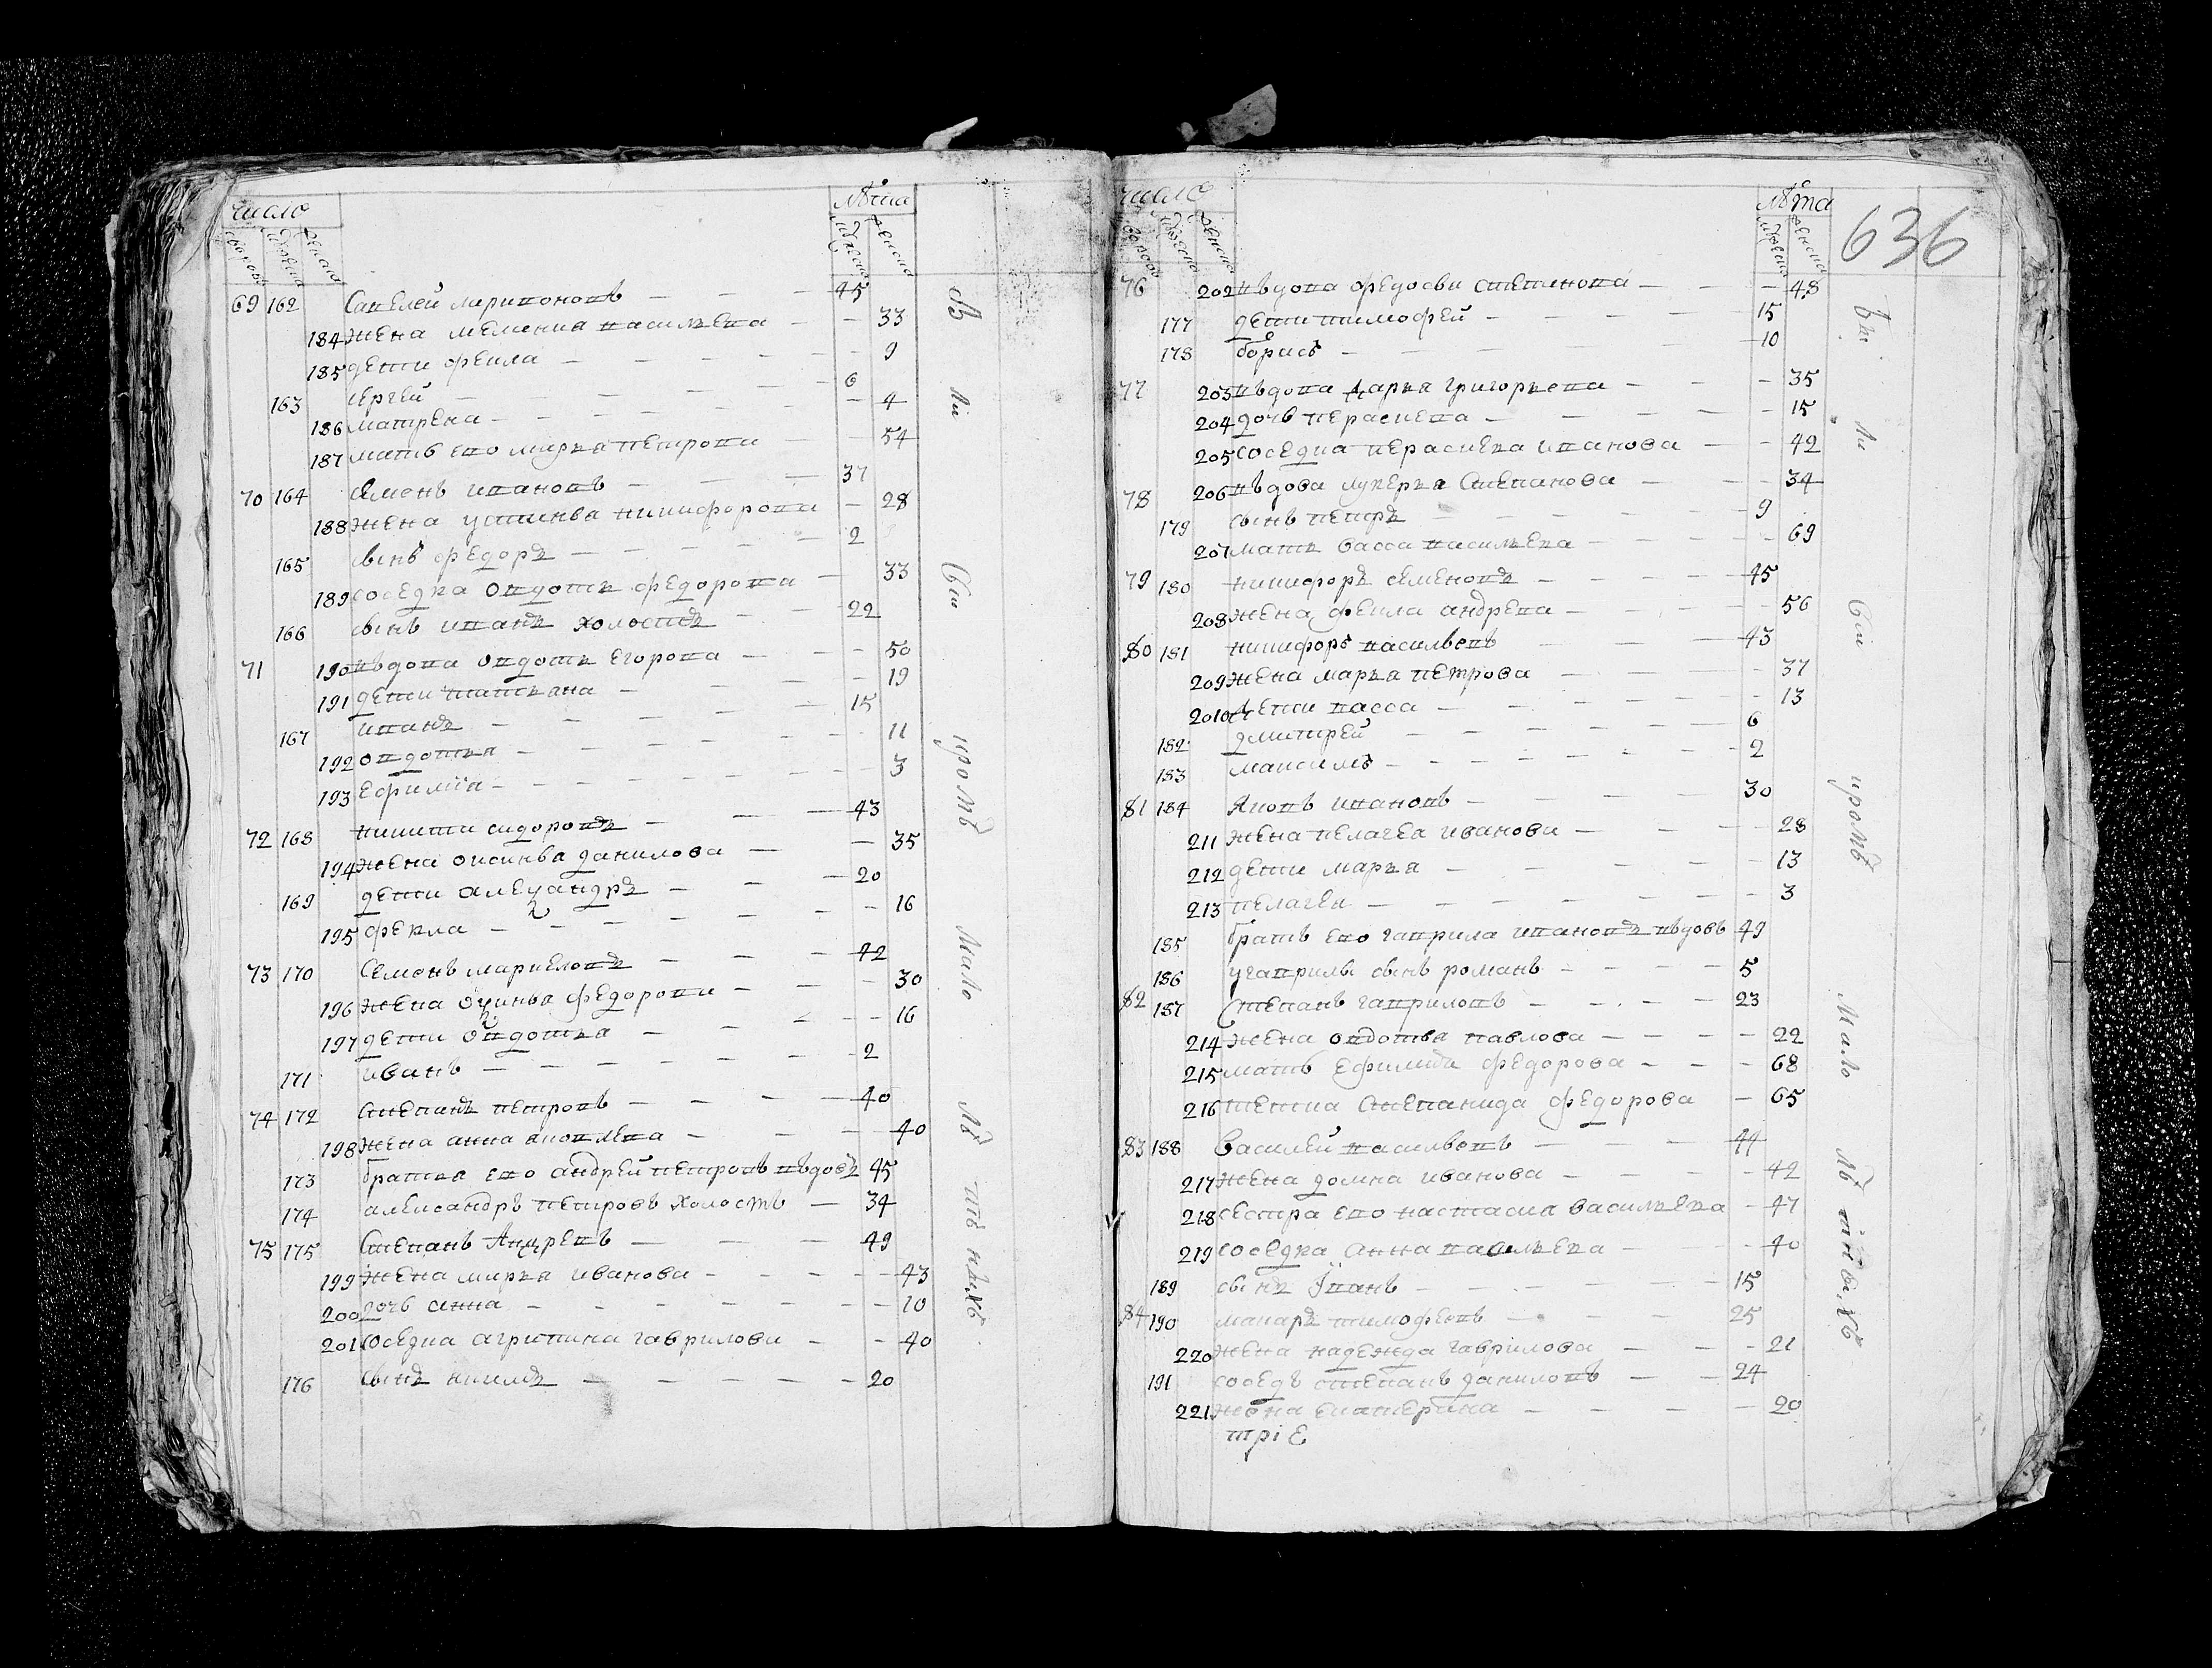 число
лѣта
69 162 Савелей лариооновъ — — — 45
184 жена меления васильева — — 33
185 дети фекла — — — 9
163 сергей — — — 6
186 матрена — — — 4
187 мать ево марья петрова — — 54
70 164 семенъ ивановъ — — — 37
188 жена устинья никифорова — 28
165 сынъ федоръ — — — 2
189 соседка овдотья федорова — 33
166 сынъ иванъ холостъ — — 22
71 190 вдова овдотья егорова — — 50
191 дети татьяна — — 19
167 иванъ — — — 15
192 овдотья — — — 11
193 ефимия — — — 3
72 168 никита сидоровъ — — — 43
194 жена оксинья данилова — — 35
169 дети александръ — — — 20
195 фекла — — — 16
73 170 Семенъ маркеловъ — — — 42
196 жена оксинья федорова — — 30
197 дети овдотья — — 16
171 иванъ — — — 2
74 172 степанъ петровъ — — — 40
198 жена анна яковлева — — 40
173 братья ево андрей петровъ вдовъ 45
174 александръ петровъ холостъ — 34
75 175 Степанъ Андревъ — — 49
199 жена марья иванова — — 43
200 дочь анна — — — 10
201 соседка агрипина гаврилова — — 40
176 сынъ никита — — — 20
Били кромѣ мало лѣтныхъ
число
лѣта
636
76 202 вдова федосья степанова — — 48
177 дети тимофей — — — 15
178 борисъ — — — 10
77 203 вдова дарья григорьева — — 35
204 дочь параскева — — — 15
205 соседка параскева иванова — — 42
78 206 вдова лукерья степанова — — 34
179 сынъ петръ — — — 9
207 мать васса васильева — — 69
79 180 никифоръ семеновъ — — — 45
208 жена фекла андрева — — 56
80 181 никифоръ васильевъ — — — 43
209 жена марья петрова — — 37
2010 дети васса — — — 13
182 дмитрей — — — 6
183 максимъ — — — 2
81 184 яковъ ивановъ — — — 30
211 жена пелагея иванова — — 28
212 дети марья — — — 13
213 пелагея — — — 3
185 братъ ево гаврила ивановъ вдовъ 49
186 угаврилы сынъ романъ — — 5
82 187 Степанъ гавриловъ — — — 23
214 жена овдотья павлова — — 22
215 мать ефимия федорова — — 68
216 тетка степанида федорова — 65
83 188 василей васильевъ — — — 44
217 жена домна иванова — — 42
218 сестра ево настасия васильева — 47
219 соседка анна васильева — — 40
189 сынъ іванъ — — — 15
84 190 макаръ тимофевъ — — — 25
220 жена надежда гаврилова — — 21
191 соседъ степанъ даниловъ — — 24
221 жена екатерина — — — 20
тріе
Били кромѣ мало лѣтныхъ